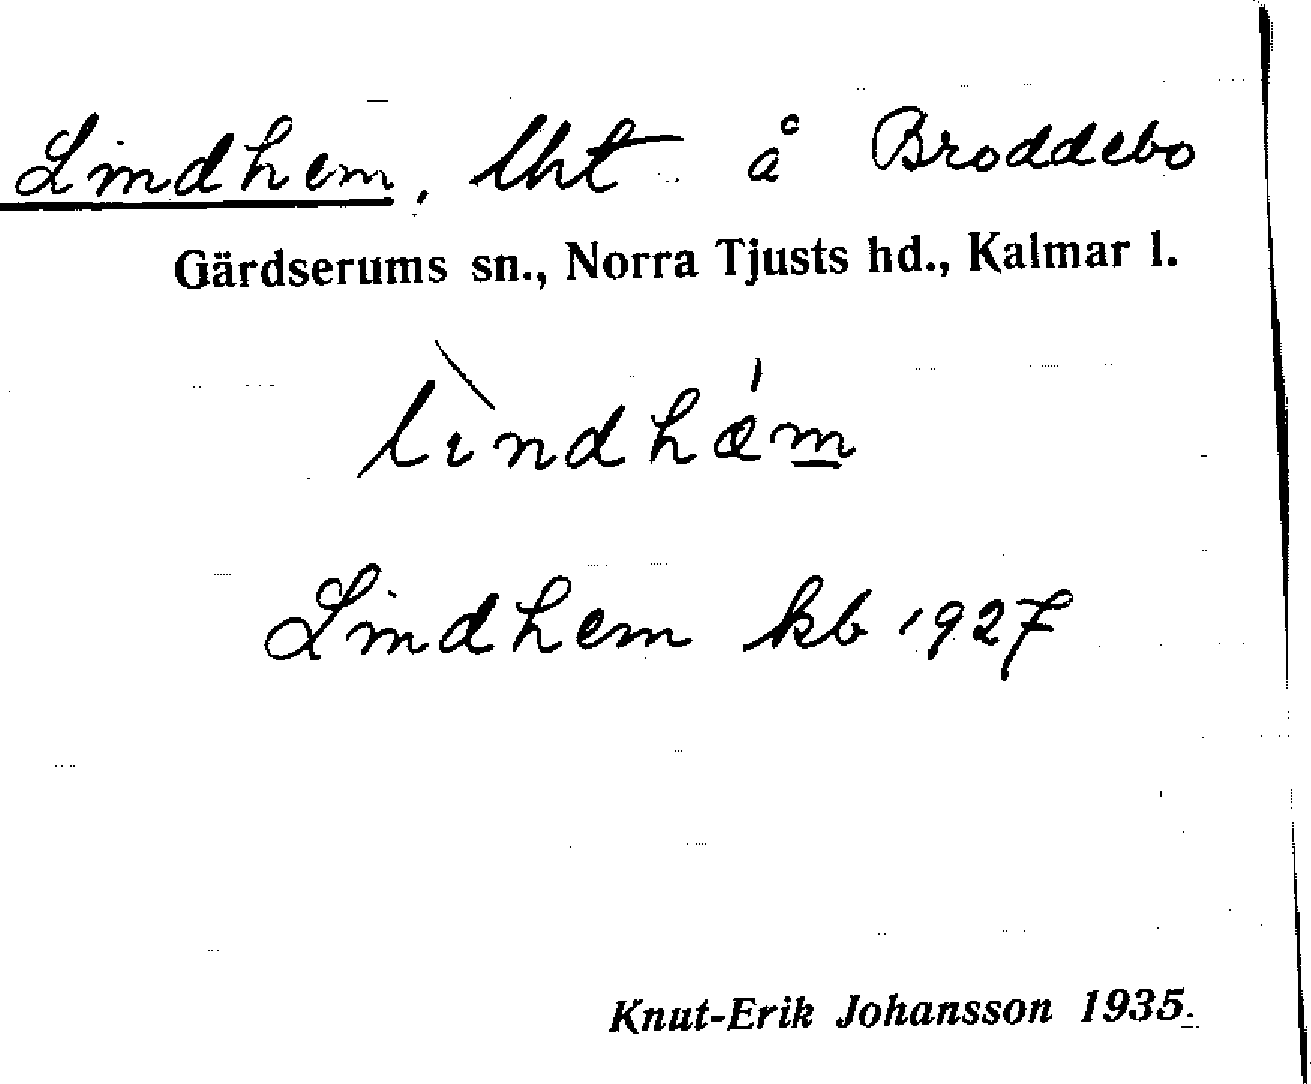 Lindhem, lht å Broddebo
Gärdserums sn., Norra Tjusts hd., Kalmar l.
lìndhǽm
Lindhem kb 1927
Knut-Erik Johansson 1935.